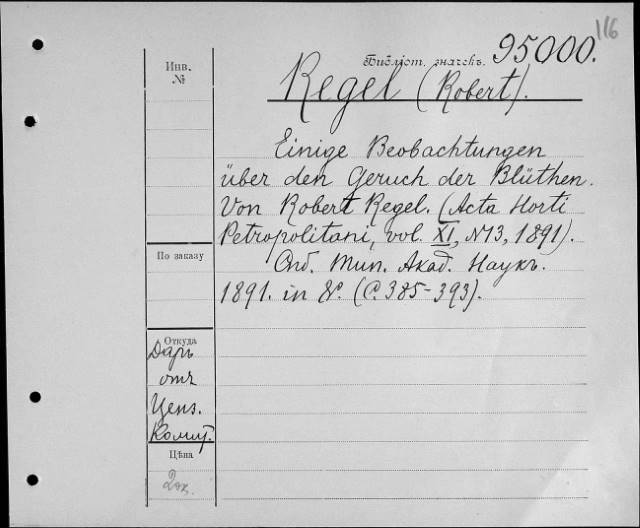 116
Библіот. значекъ. 95000.
Инв.
№
Regel (Robert).
Einige Beobachtungen
über den Geruch der Blüthen.
Von Robert Regel. (Acta Horti
Petropolitani, vol. XI, №13, 1891).
Спб. Тип. Акад. Наукъ.
1891. in 8º. (С. 385-393).
По заказу
Откуда
Даръ
отъ
Ценз.
Комит.
Цѣна